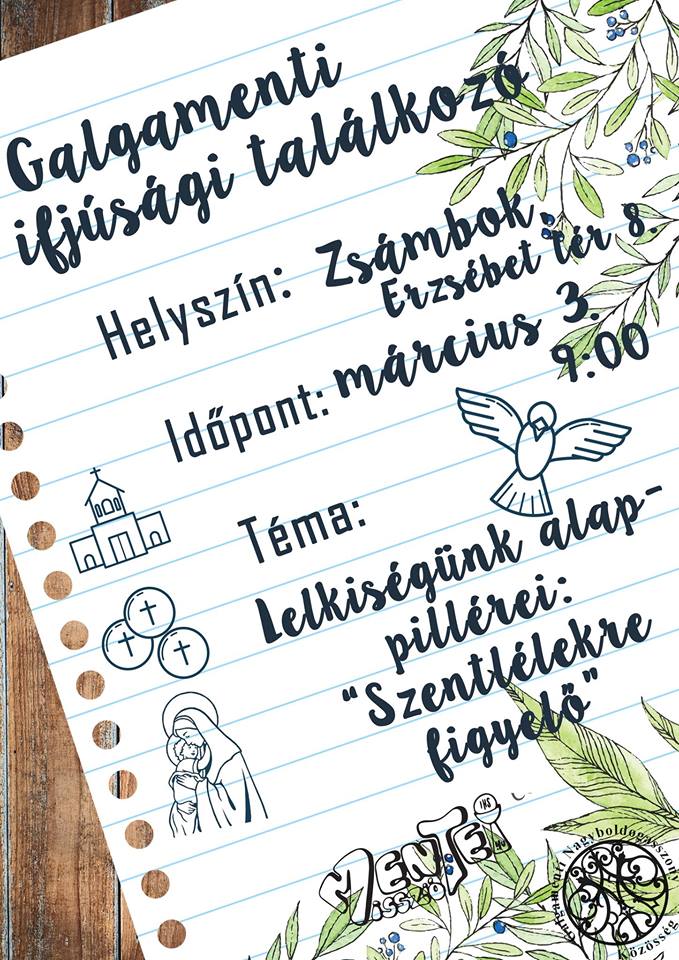 Galgamenti
ifjúsági találkozó
Helyszín: Zsámbok,
Erzsébet tér 8.
Időpont: március 3.
9:00
Téma:
Lelkiségünk alap-
pillérei:
“Szentlélekre
figyelő”
MENTE
MISSZIÓ
Galgamenti Nagyboldogasszony
Közösség